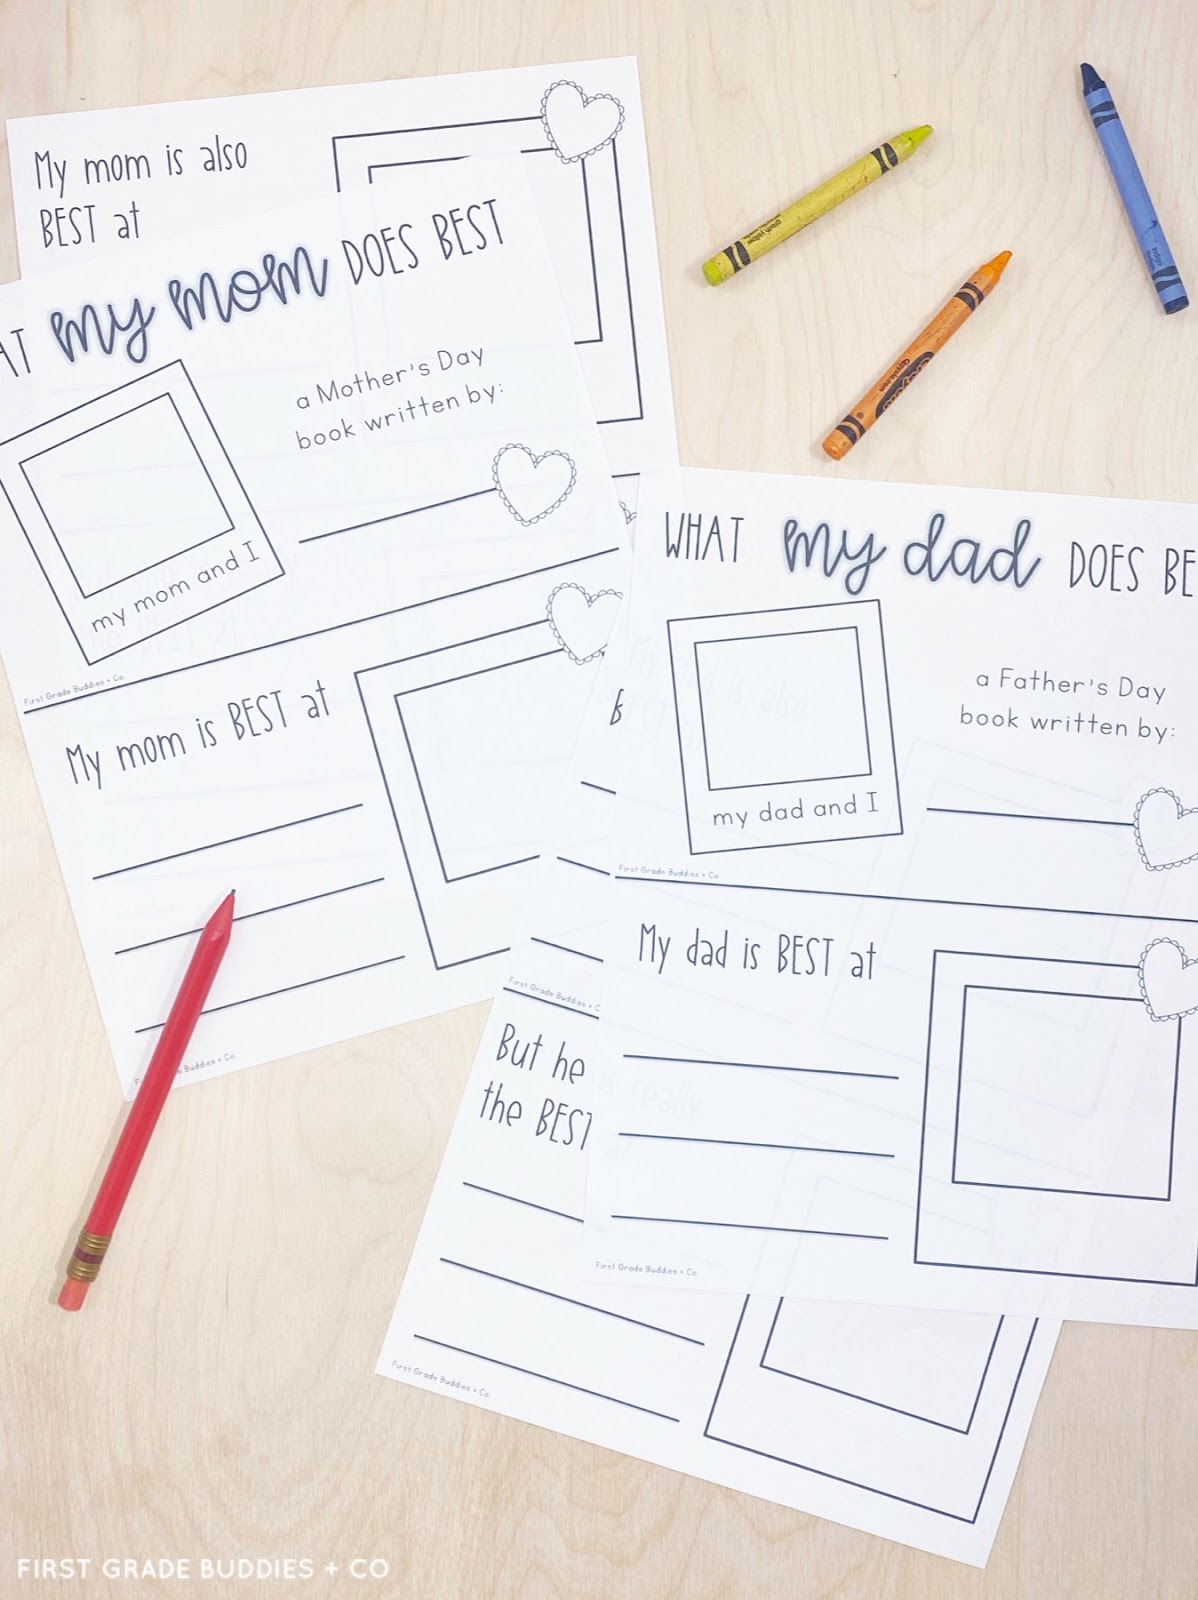 My mom is also
BEST at
my mom DOES BEST
a Mother's Day
book written by:
my mom and I
First Grade Buddies + Co.
My mom is BEST at
WHAT my dad DOES BE
a Father's Day
book written by:
my dad and I
First Grade Buddies + Co
My dad is BEST at
First Grade Buddies + Co
First Grade Buddies + C
But he
the BEST
First Grade Buddies + Co
FIRST GRADE BUDDIES + CO